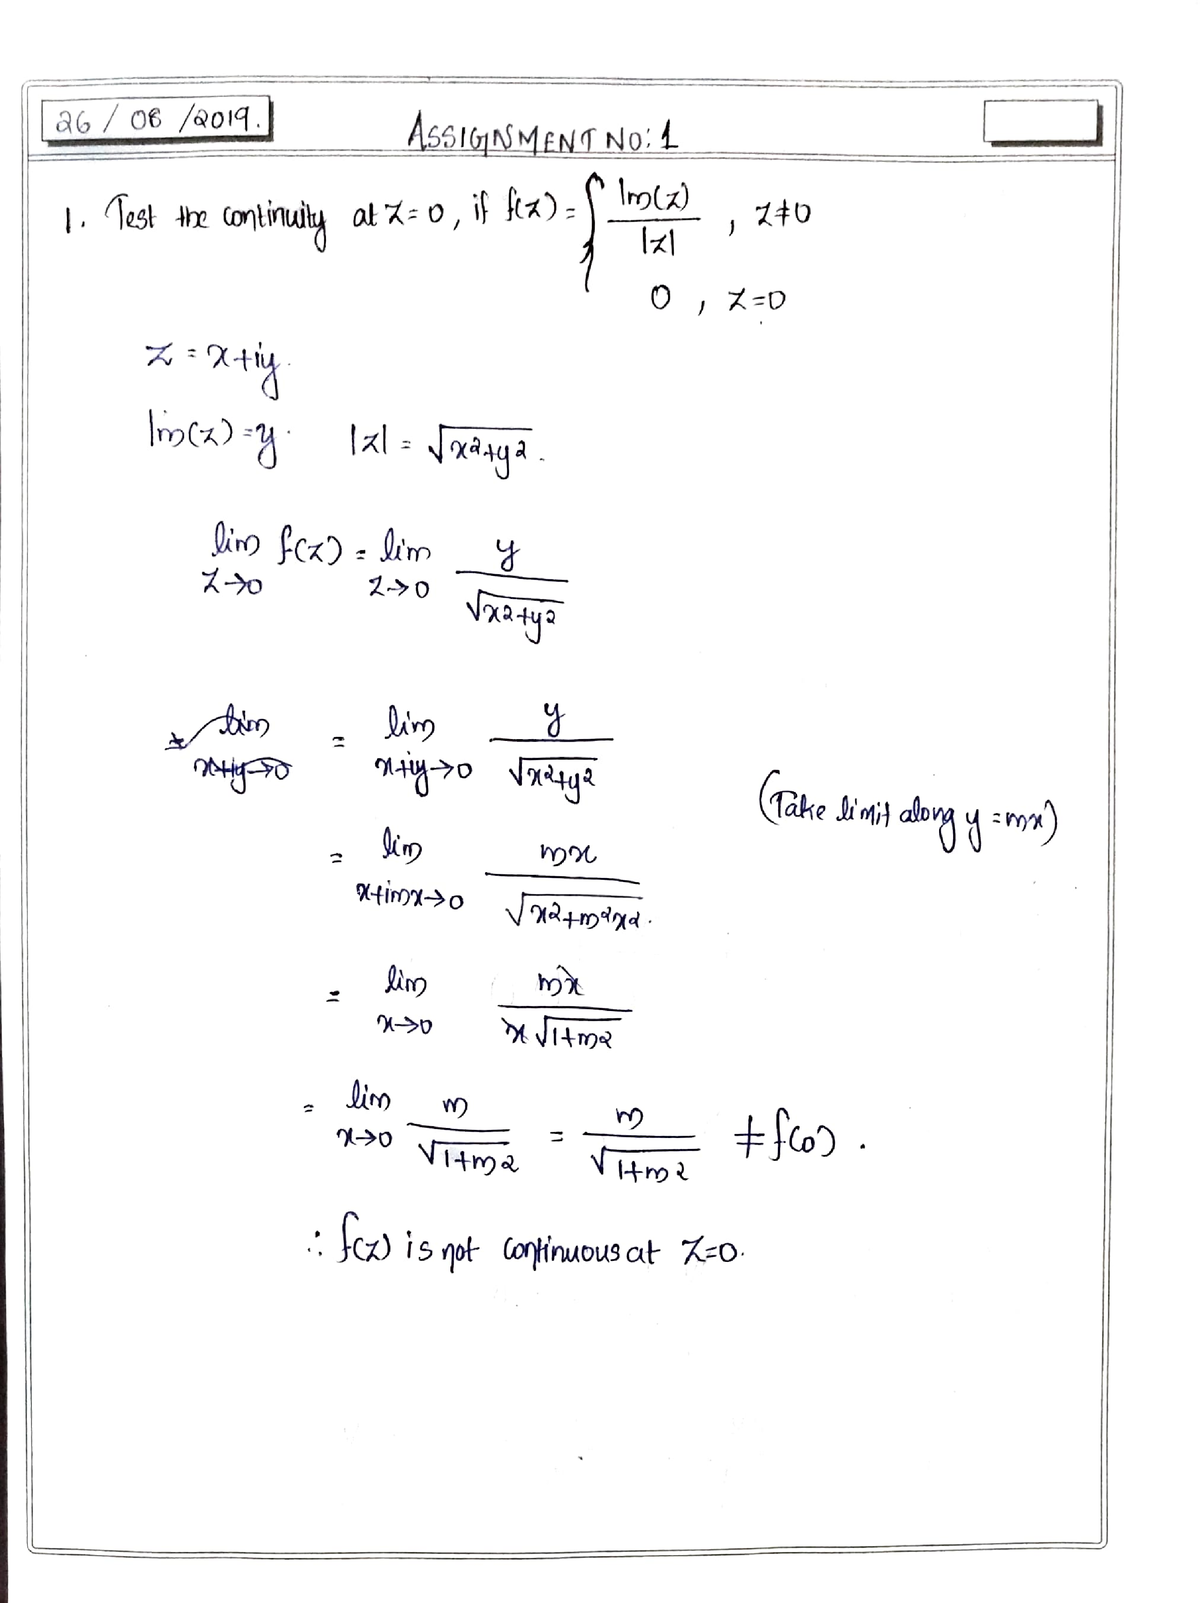 26 / 08 /2019.
ASSIGNMENT NO: 1
1. Test the continuity at z=0, if f(z) = { Im(z)/|z| , z≠0
0 , z=0
z = x+iy.
Im(z) = y. |z| = √x²+y².
lim z→0 f(z) = lim z→0 y/√x²+y²
lim x+iy→0 = lim x+iy→0 y/√x²+y²
(Take limit along y=mx)
= lim x+imx→0 mx/√x²+m²x².
= lim x→0 mx/x√1+m²
= lim x→0 m/√1+m² = m/√1+m² ≠ f(0).
∴ f(z) is not continuous at z=0.